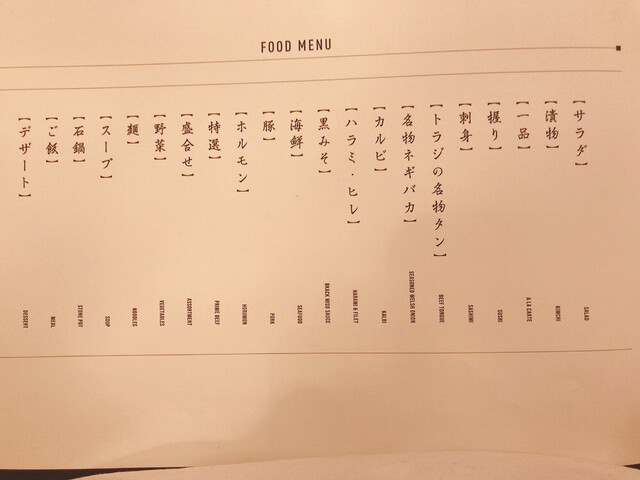 FOOD MENU
【サラダ】
【漬物】
【一品】
【握り】
【刺身】
【トラジの名物タン】
【名物ネギバカ】
【カルビ】
【ハラミ・ヒレ】
【黒みそ】
【海鮮】
【豚】
【ホルモン】
【特選】
【盛合せ】
【野菜】
【麺】
【スープ】
【石鍋】
【ご飯】
【デザート】
SALAD
KIMCHI
A LA CARTE
SUSHI
SASHIMI
BEEF TONGUE
SEASONED WELSH ONION
KALBI
HARAMI & FILET
BLACK MISO SAUCE
SEAFOOD
PORK
HORUMON
PRIME BEEF
ASSORTMENT
VEGETABLES
NOODLES
SOUP
STONE POT
MEAL
DESSERT